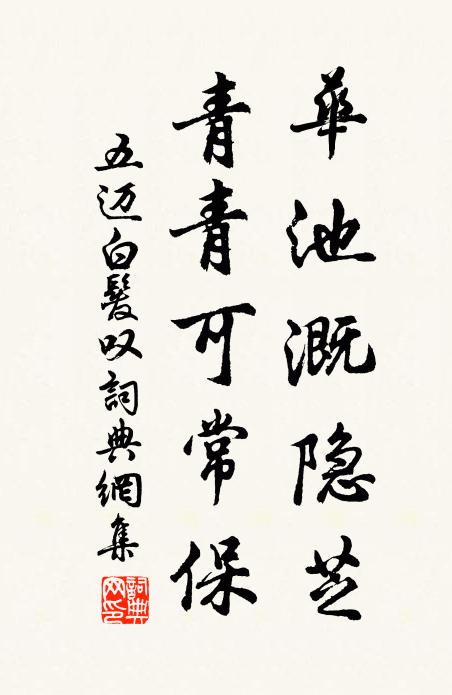 華池溉隐芝
青青可常保
五迈白髮叹詞典網集
詞典网印